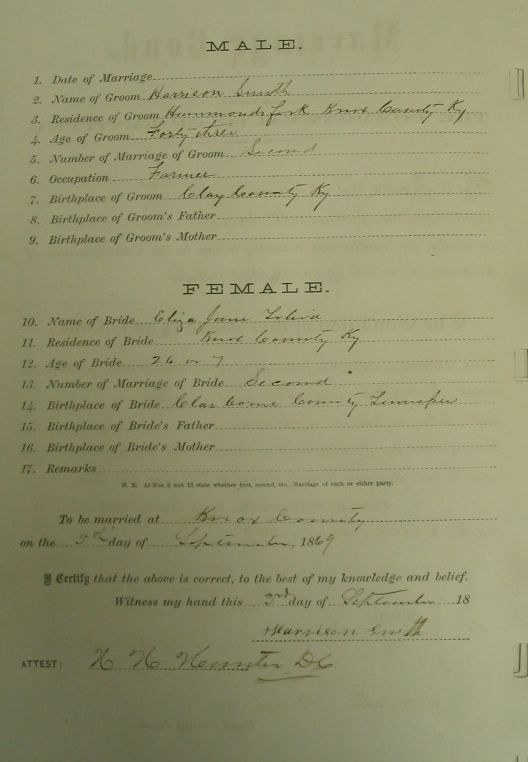 MALE.
1. Date of Marriage
2. Name of Groom Harrison Smith
3. Residence of Groom Hammonds fork Knox County Ky
4. Age of Groom Forty three
5. Number of Marriage of Groom Second
6. Occupation Farmer
7. Birthplace of Groom Clay County Ky
8. Birthplace of Groom's Father
9. Birthplace of Groom's Mother
FEMALE.
10. Name of Bride Eliza Jane
11. Residence of Bride Knox County Ky
12. Age of Bride 26 or 7
13. Number of Marriage of Bride Second
14. Birthplace of Bride Claiborne County
15. Birthplace of Bride's Father
16. Birthplace of Bride's Mother
17. Remarks
N. B. At Nos. 5 and 13 state whether first, second, etc., Marriage of each or either party.
To be married at Knox County
on the day of September, 1869
I Certify that the above is correct, to the best of my knowledge and belief.
Witness my hand this 3rd day of September 18
Harrison Smith
ATTEST: H H Hunter DC